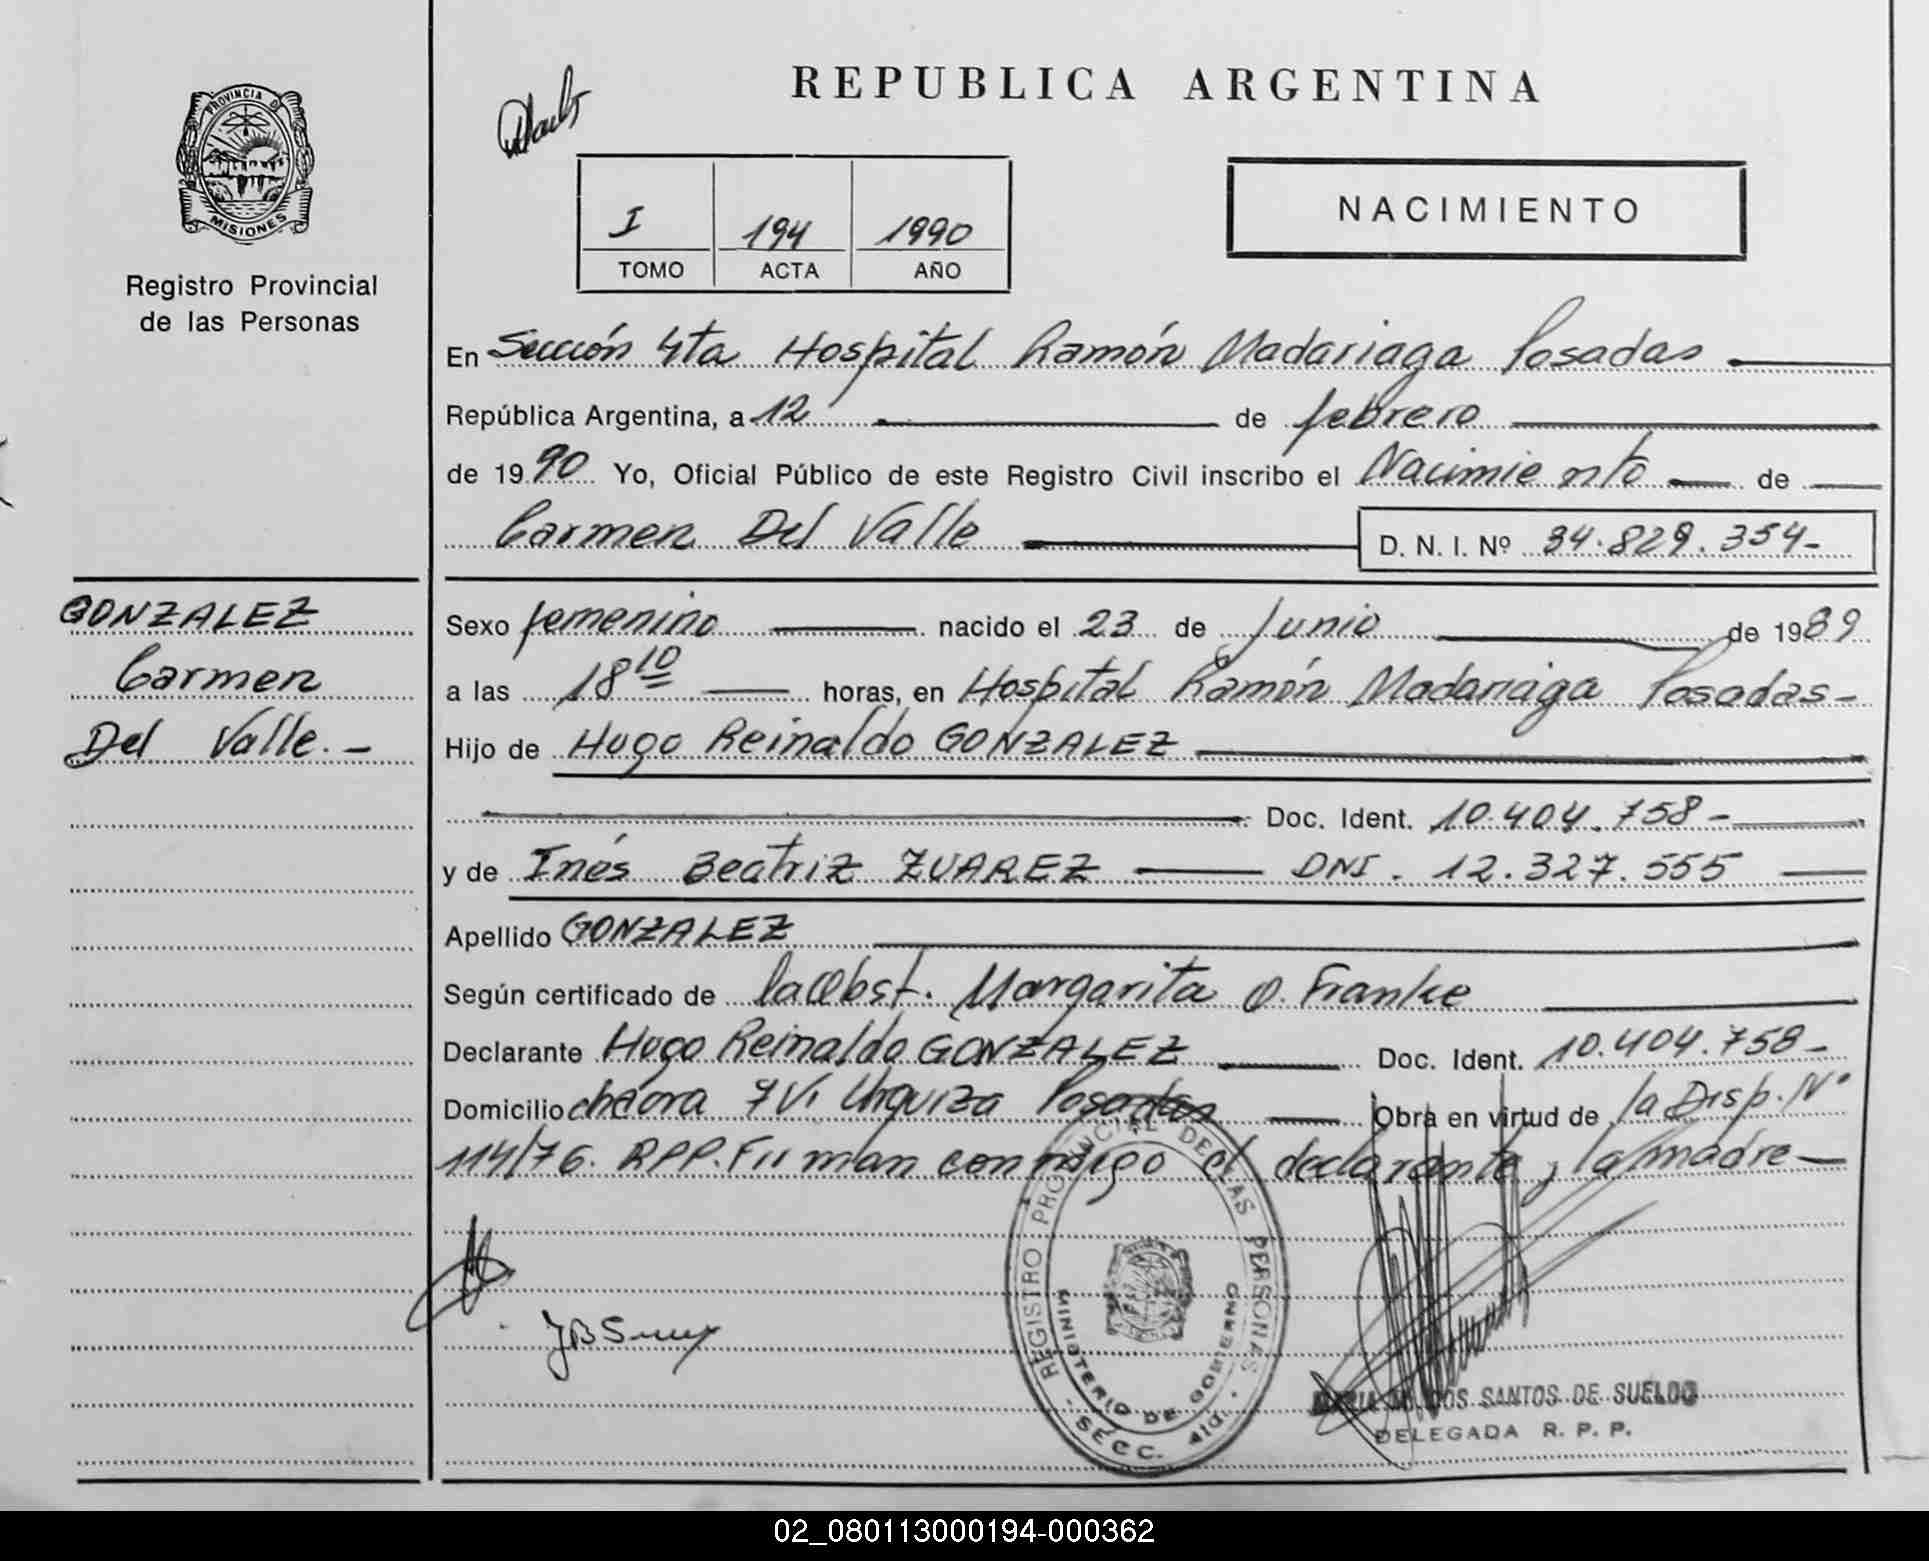 PROVINCIA D
MISIONES
Registro Provincial
de las Personas
REPUBLICA ARGENTINA
I 194 1990
TOMO ACTA AÑO
NACIMIENTO
En Sección 4ta Hospital Ramón Madariaga Posadas
República Argentina, a 12 de febrero
de 1990 Yo, Oficial Público de este Registro Civil inscribo el Nacimiento de
Carmen Del Valle D. N. I. Nº 34.829.354-
GONZALEZ
Carmen
Del Valle.-
Sexo femenino nacido el 23 de Junio de 1989
a las 18 10 horas, en Hospital Ramón Madariaga Posadas-
Hijo de Hugo Reinaldo GONZALEZ
Doc. Ident. 10.404.758-
y de Inés Beatriz ZUAREZ DNI. 12.327.555
Apellido GONZALEZ
Según certificado de la Obst. Margarita O. Franke
Declarante Hugo Reinaldo GONZALEZ Doc. Ident. 10.404.758-
Domicilio chacra 7 Vi Urquiza Posadas Obra en virtud de la Disp. Nº
114/76. RPP. Firman conmigo el declarante y la madre-
REGISTRO PROVINCIAL DE LAS PERSONAS
MINISTERIO DE GOBIERNO
- SECC. 4ta. -
DOS SANTOS DE SUELDO
DELEGADA R. P. P.
02_080113000194-000362